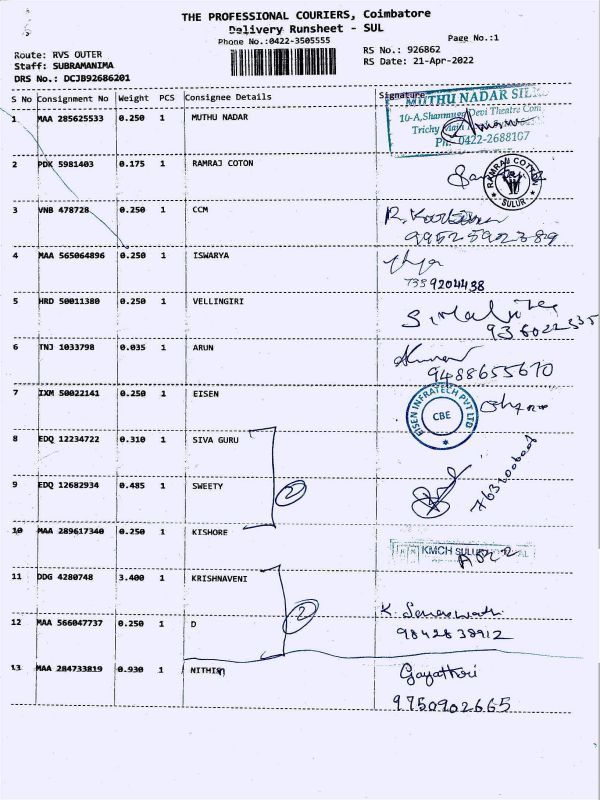 THE PROFESSIONAL COURIERS, Coimbatore
Delivery Runsheet - SUL
Phone No.:0422-3505555
Page No.:1
Route: RVS OUTER
Staff: SUBRAMANIMA
DRS No.: DCJB92686201
RS No.: 926862
RS Date: 21-Apr-2022
S No Consignment No Weight PCS Consignee Details Signature
1 MAA 285625533 0.250 1 MUTHU NADAR
MUTHU NADAR SILKS
10-A, Shanmuga Devi Theatre Com
Trichy Main
Ph: 0422-2688107
2 PDK 5981403 0.175 1 RAMRAJ COTON
RAMRAJ COTTON
SULUR
3 VNB 478728 0.250 1 CCM
R. 
9952592389
4 MAA 565064896 0.250 1 ISWARYA
7359204438
5 HRD 50011380 0.250 1 VELLINGIRI
6 TNJ 1033798 0.035 1 ARUN
9488655670
7 IXM 50022141 0.250 1 EISEN
EISEN INFRATECH PVT LTD
CBE
8 EDQ 12234722 0.310 1 SIVA GURU
9 EDQ 12682934 0.485 1 SWEETY
2
10 MAA 289617340 0.250 1 KISHORE
KMCH SULUR HOSPITAL
11 DDG 4280748 3.400 1 KRISHNAVENI
12 MAA 566047737 0.250 1 D
2
K. Saraswathi
9842838912
13 MAA 284733819 0.930 1 NITHIN
Gayathiri
9750902665